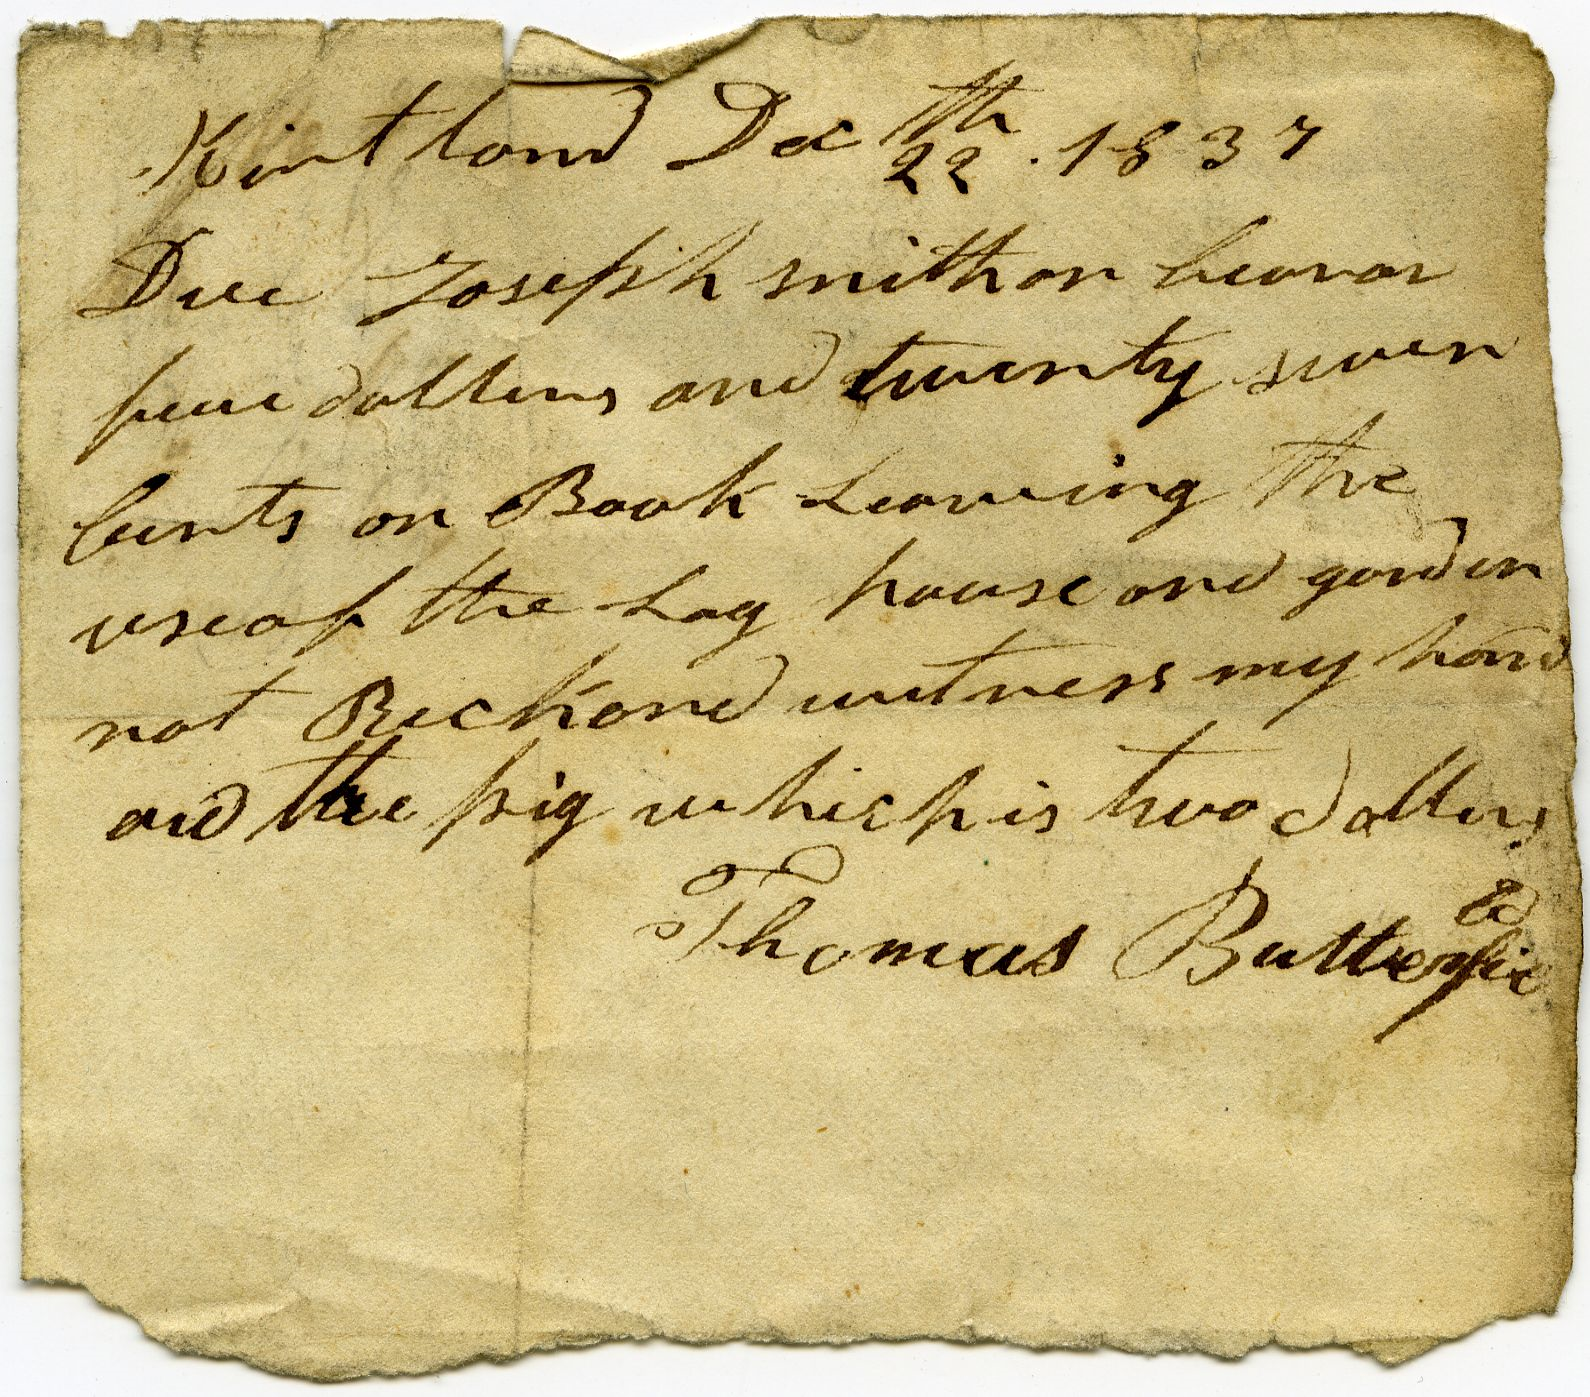 Kirtland Dec 22th. 1837
Due Joseph smith or bearor
five dollers and twenty seven
Cents on Book Leaveing the
use of the Log house and garden
not Reckond witness my hand
and the pig which is two dollers
Thomas Butterfield